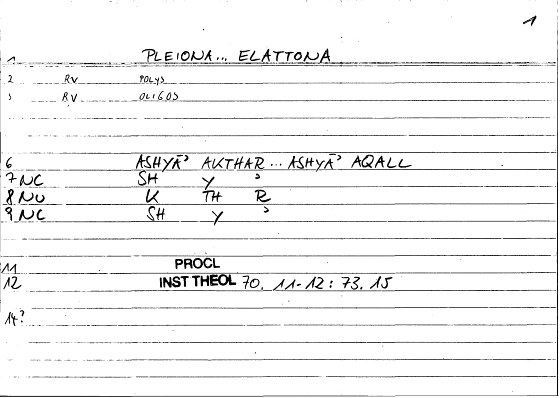 1
1 PLEIONA... ELATTONA
2 RV POLYS
3 RV OLIGOS
6 ASHYĀ' AKTHAR... ASHYĀ' AQALL
7 NC SH Y '
8 NU K TH R
9 NC SH Y '
11 PROCL
12 INST THEOL 70. 11-12: 73. 15
14?